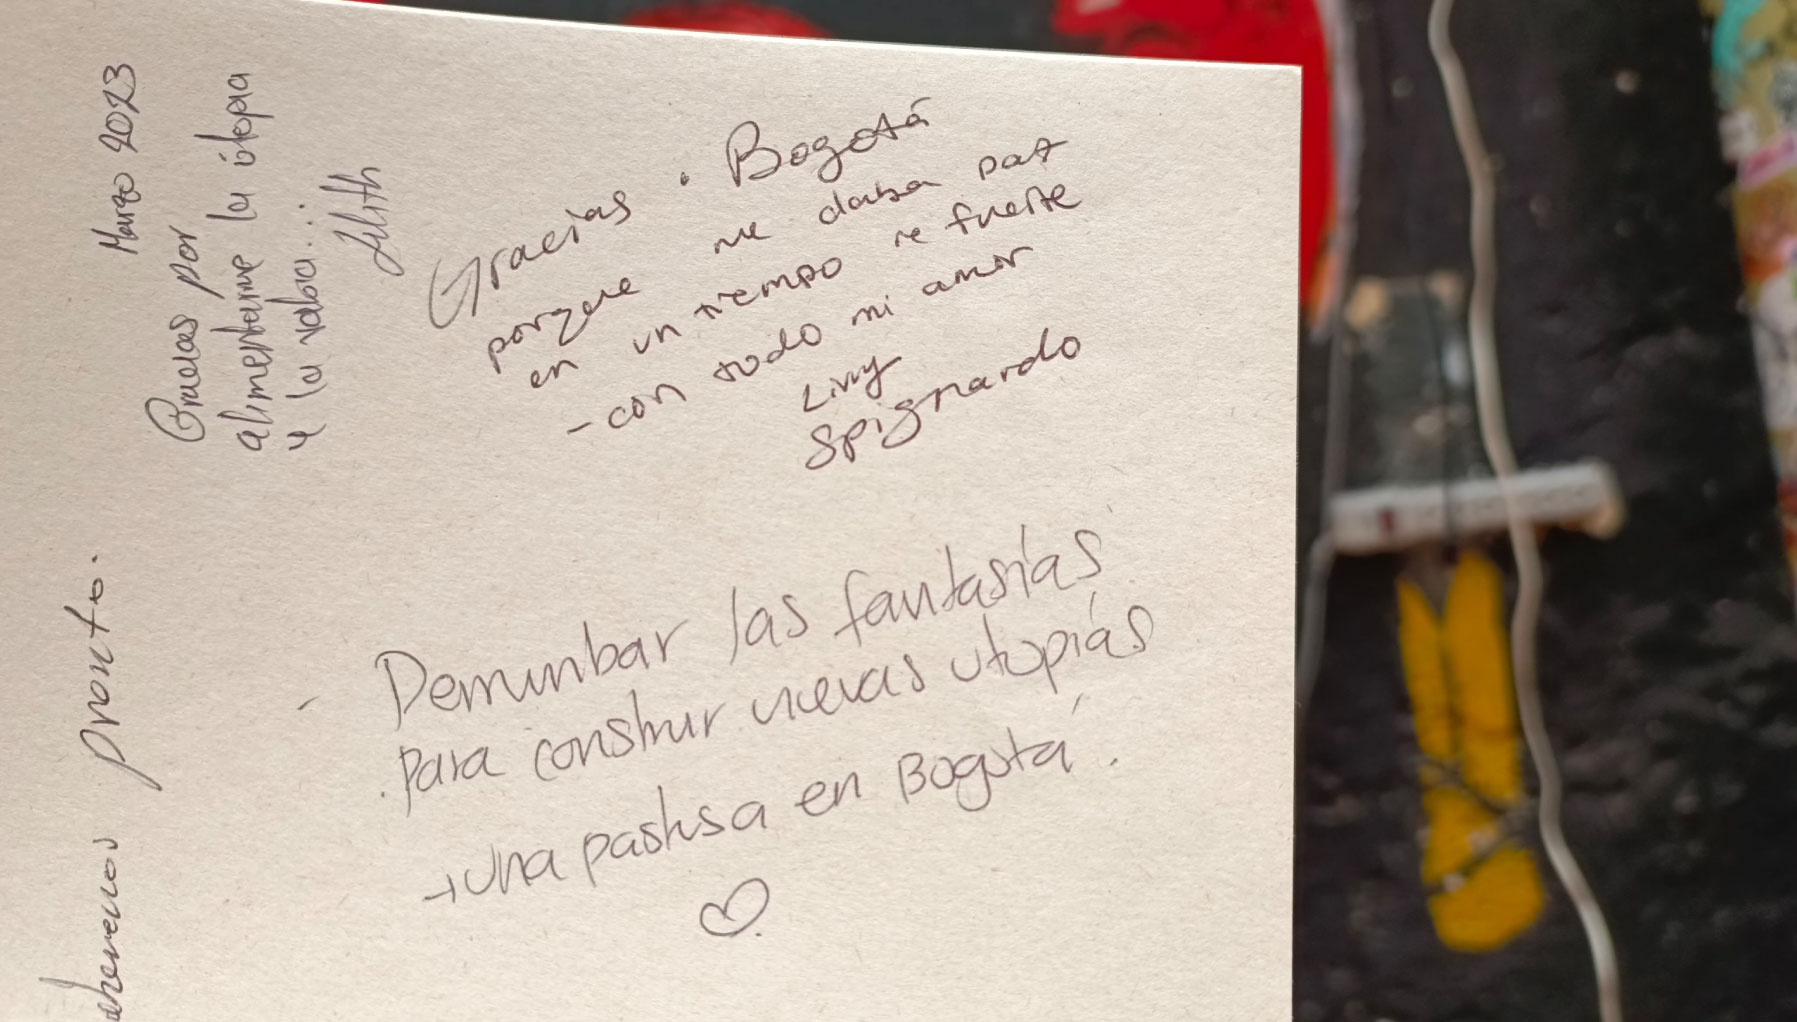 Marzo 2023
Gracias por
alimentarme la útopia
y la rabia...
Lilith
Gracias. Bogotá
porque me daba paz
en un tiempo re fuerte
- con todo mi amor
Livvy
Spignardo
pronto.
- Derrumbar las fantasías
para construir nuevas utopías.
→ una pastusa en Bogotá.